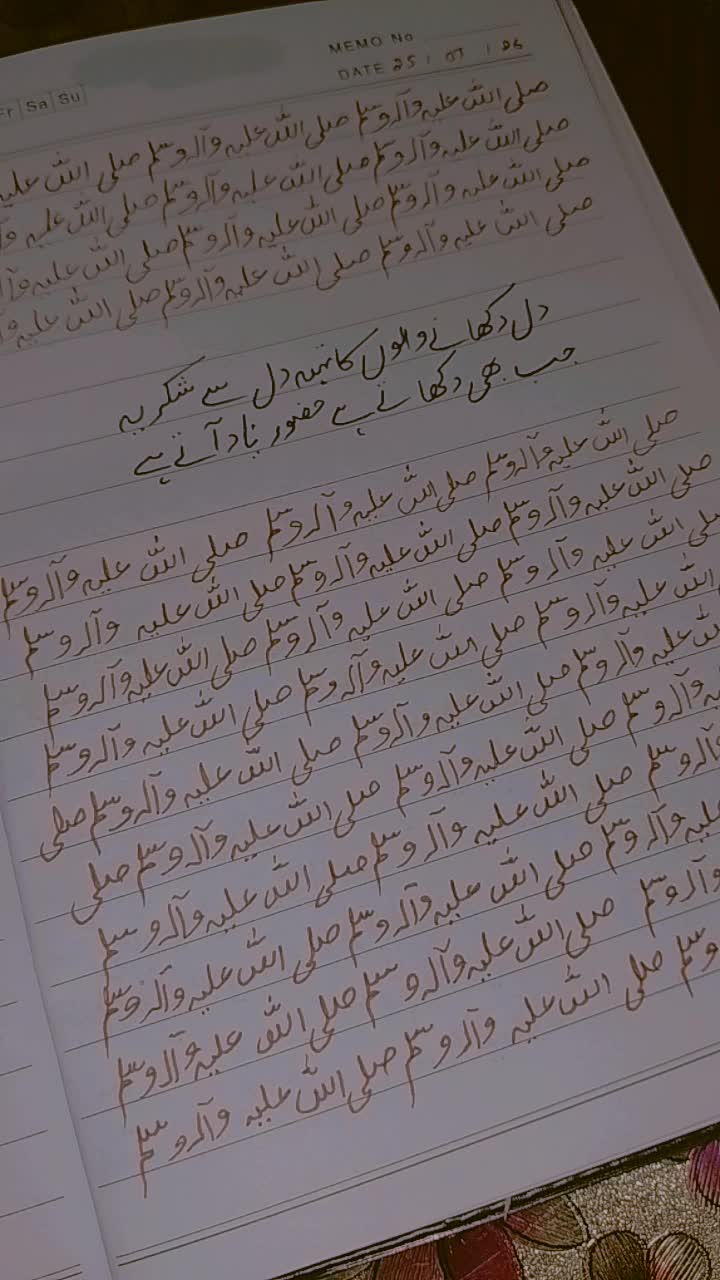 MEMO No
Fr Sa Su
DATE 25 / 07 / 26
صلی اللہ علیہ وآلہ وسلم صلی اللہ علیہ وآلہ وسلم صلی اللہ علیہ
صلی اللہ علیہ وآلہ وسلم صلی اللہ علیہ وآلہ وسلم صلی اللہ علیہ
صلی اللہ علیہ وآلہ وسلم صلی اللہ علیہ وآلہ وسلم صلی اللہ علیہ
صلی اللہ علیہ وآلہ وسلم صلی اللہ علیہ وآلہ وسلم صلی اللہ علیہ
دل دکھانے والوں کا تہہ دل سے شکریہ
جب بھی دکھاتے ہے حضور یاد آتے ہے
صلی اللہ علیہ وآلہ وسلم صلی اللہ علیہ وآلہ وسلم صلی اللہ علیہ وآلہ وسلم
صلی اللہ علیہ وآلہ وسلم صلی اللہ علیہ وآلہ وسلم صلی اللہ علیہ وآلہ وسلم
صلی اللہ علیہ وآلہ وسلم صلی اللہ علیہ وآلہ وسلم صلی اللہ علیہ وآلہ وسلم
اللہ علیہ وآلہ وسلم صلی اللہ علیہ وآلہ وسلم صلی اللہ علیہ وآلہ وسلم
اللہ علیہ وآلہ وسلم صلی اللہ علیہ وآلہ وسلم صلی اللہ علیہ وآلہ وسلم صلی
وآلہ وسلم صلی اللہ علیہ وآلہ وسلم صلی اللہ علیہ وآلہ وسلم صلی
وآلہ وسلم صلی اللہ علیہ وآلہ وسلم صلی اللہ علیہ وآلہ وسلم
علیہ وآلہ وسلم صلی اللہ علیہ وآلہ وسلم صلی اللہ علیہ وآلہ وسلم
وآلہ وسلم صلی اللہ علیہ وآلہ وسلم صلی اللہ علیہ وآلہ وسلم
وسلم صلی اللہ علیہ وآلہ وسلم صلی اللہ علیہ وآلہ وسلم